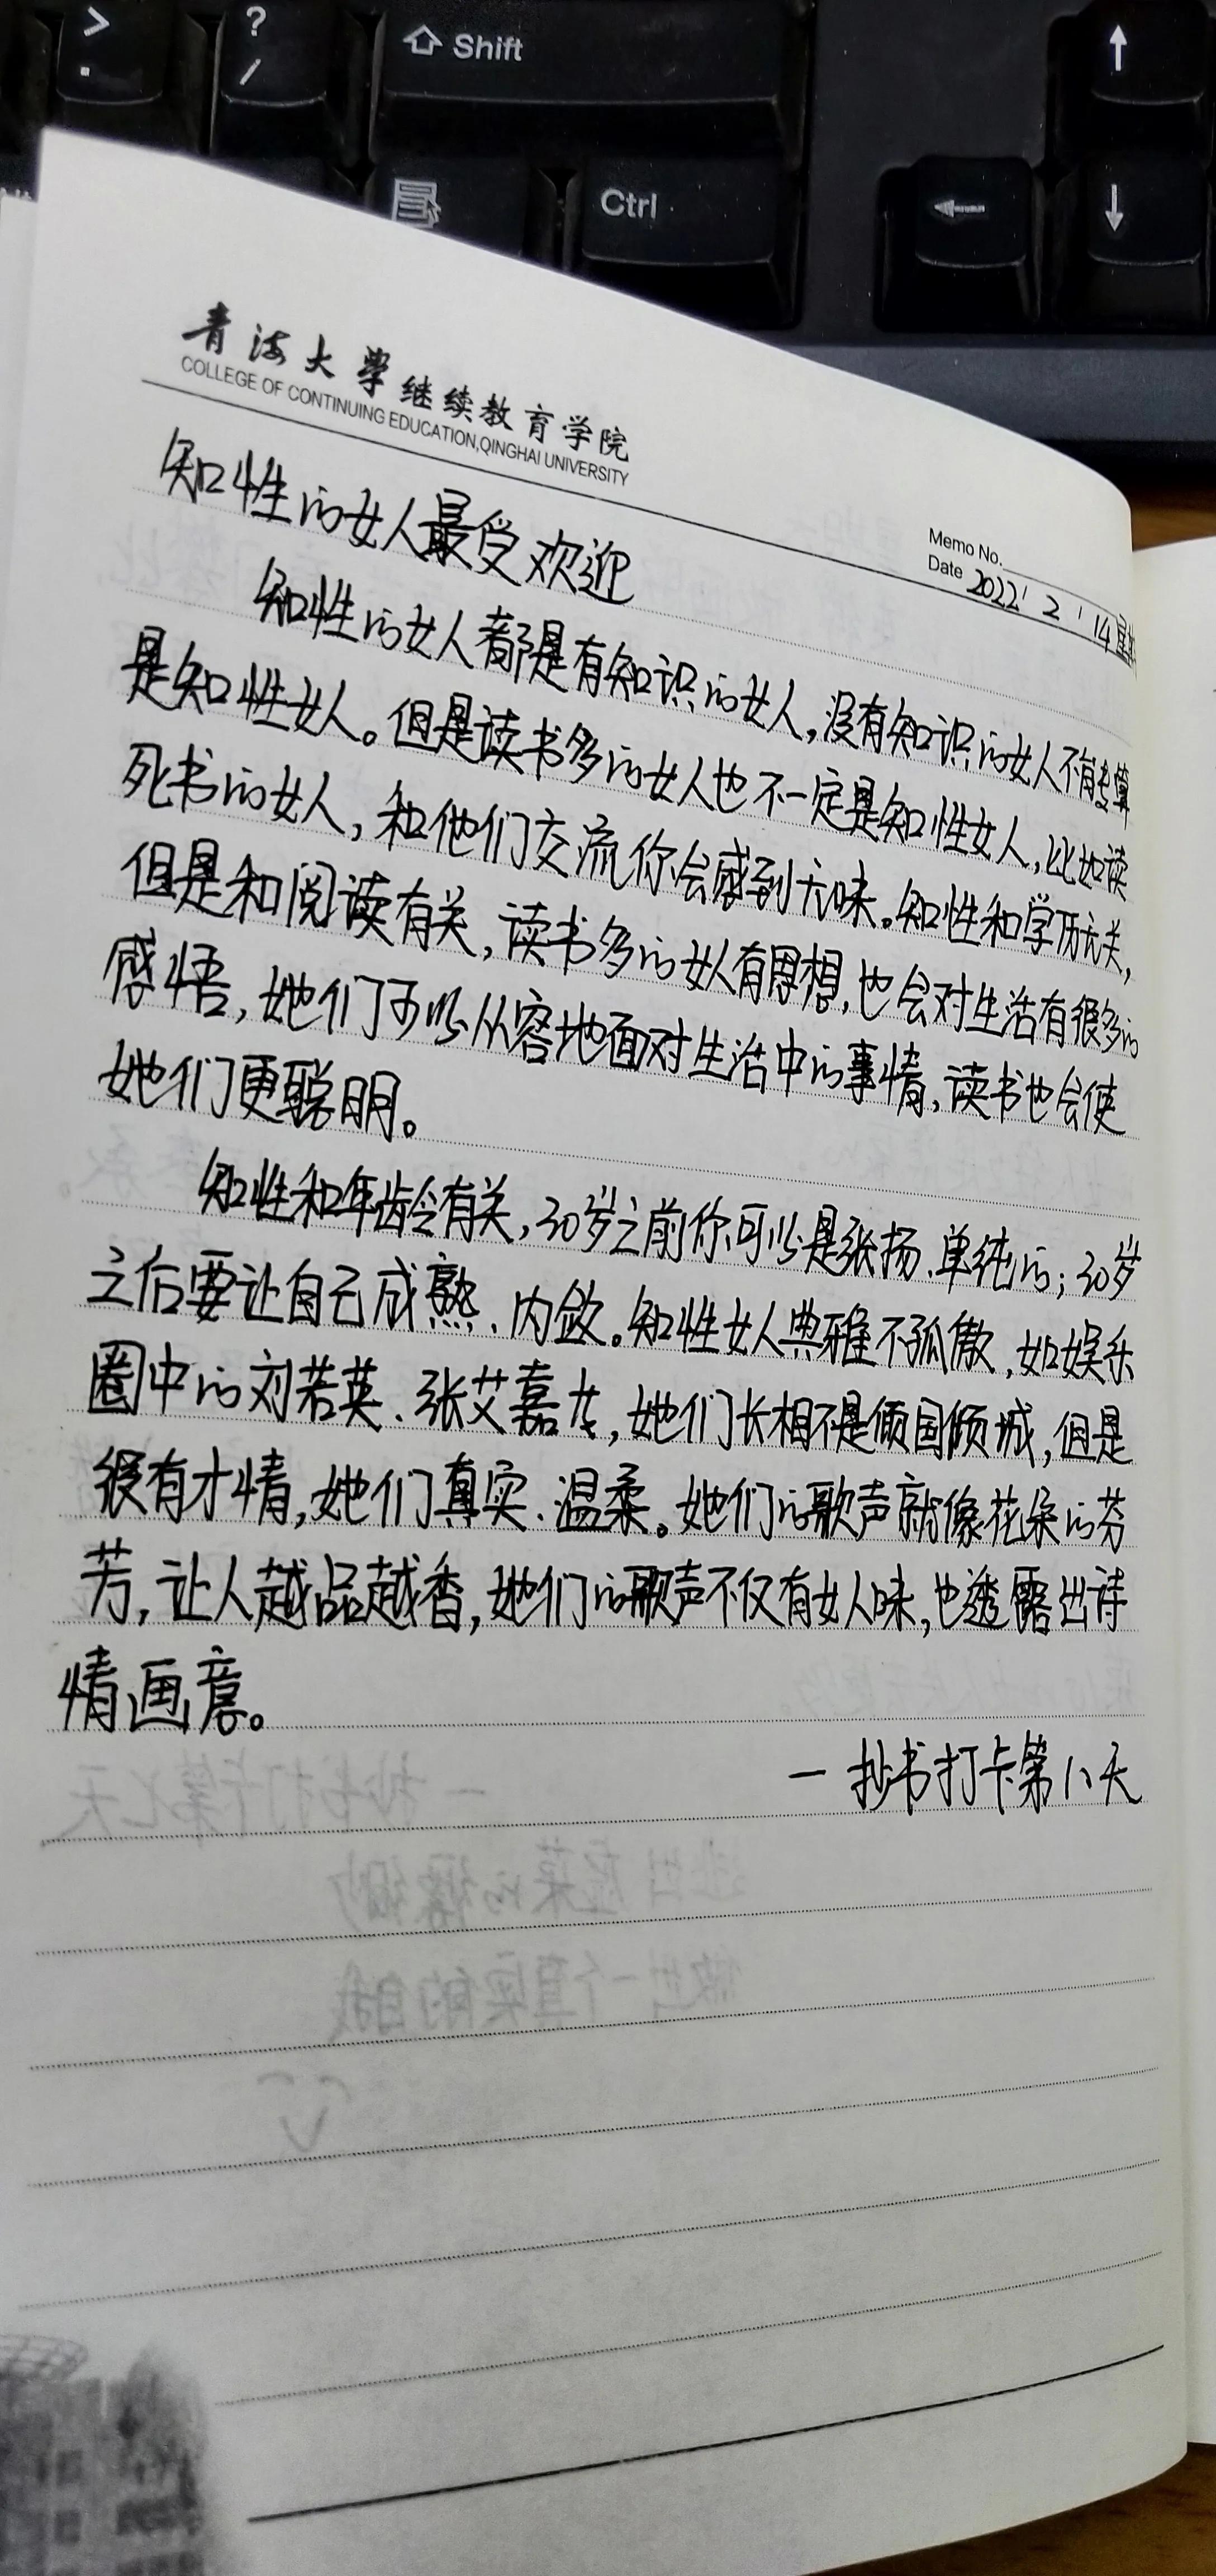 >
.
?
/
Shift
↑
Ctrl
←
↓
青海大学继续教育学院
COLLEGE OF CONTINUING EDUCATION,QINGHAI UNIVERSITY
Memo No.
Date 2022' 2 ' 14
知性的女人最受欢迎
知性的女人都是有知识的女人,没有知识的女人不能算
是知性女人。但是读书多的女人也不一定是知性女人,比如读
死书的女人,和他们交流你会感到无味。知性和学历无关,
但是和阅读有关,读书多的女人有思想,也会对生活有很多的
感悟,她们可以从容地面对生活中的事情,读书也会使
她们更聪明。
知性和年龄有关,30岁之前你可以是张扬、单纯的;30岁
之后要让自己成熟、内敛。知性女人典雅不孤傲,如娱乐
圈中的刘若英、张艾嘉,她们长相不是倾国倾城,但是
很有才情,她们真实、温柔。她们的歌声就像花朵的芬
芳,让人越品越香,她们的歌声不仅有女人味,也透露出诗
情画意。
一抄书打卡第八天